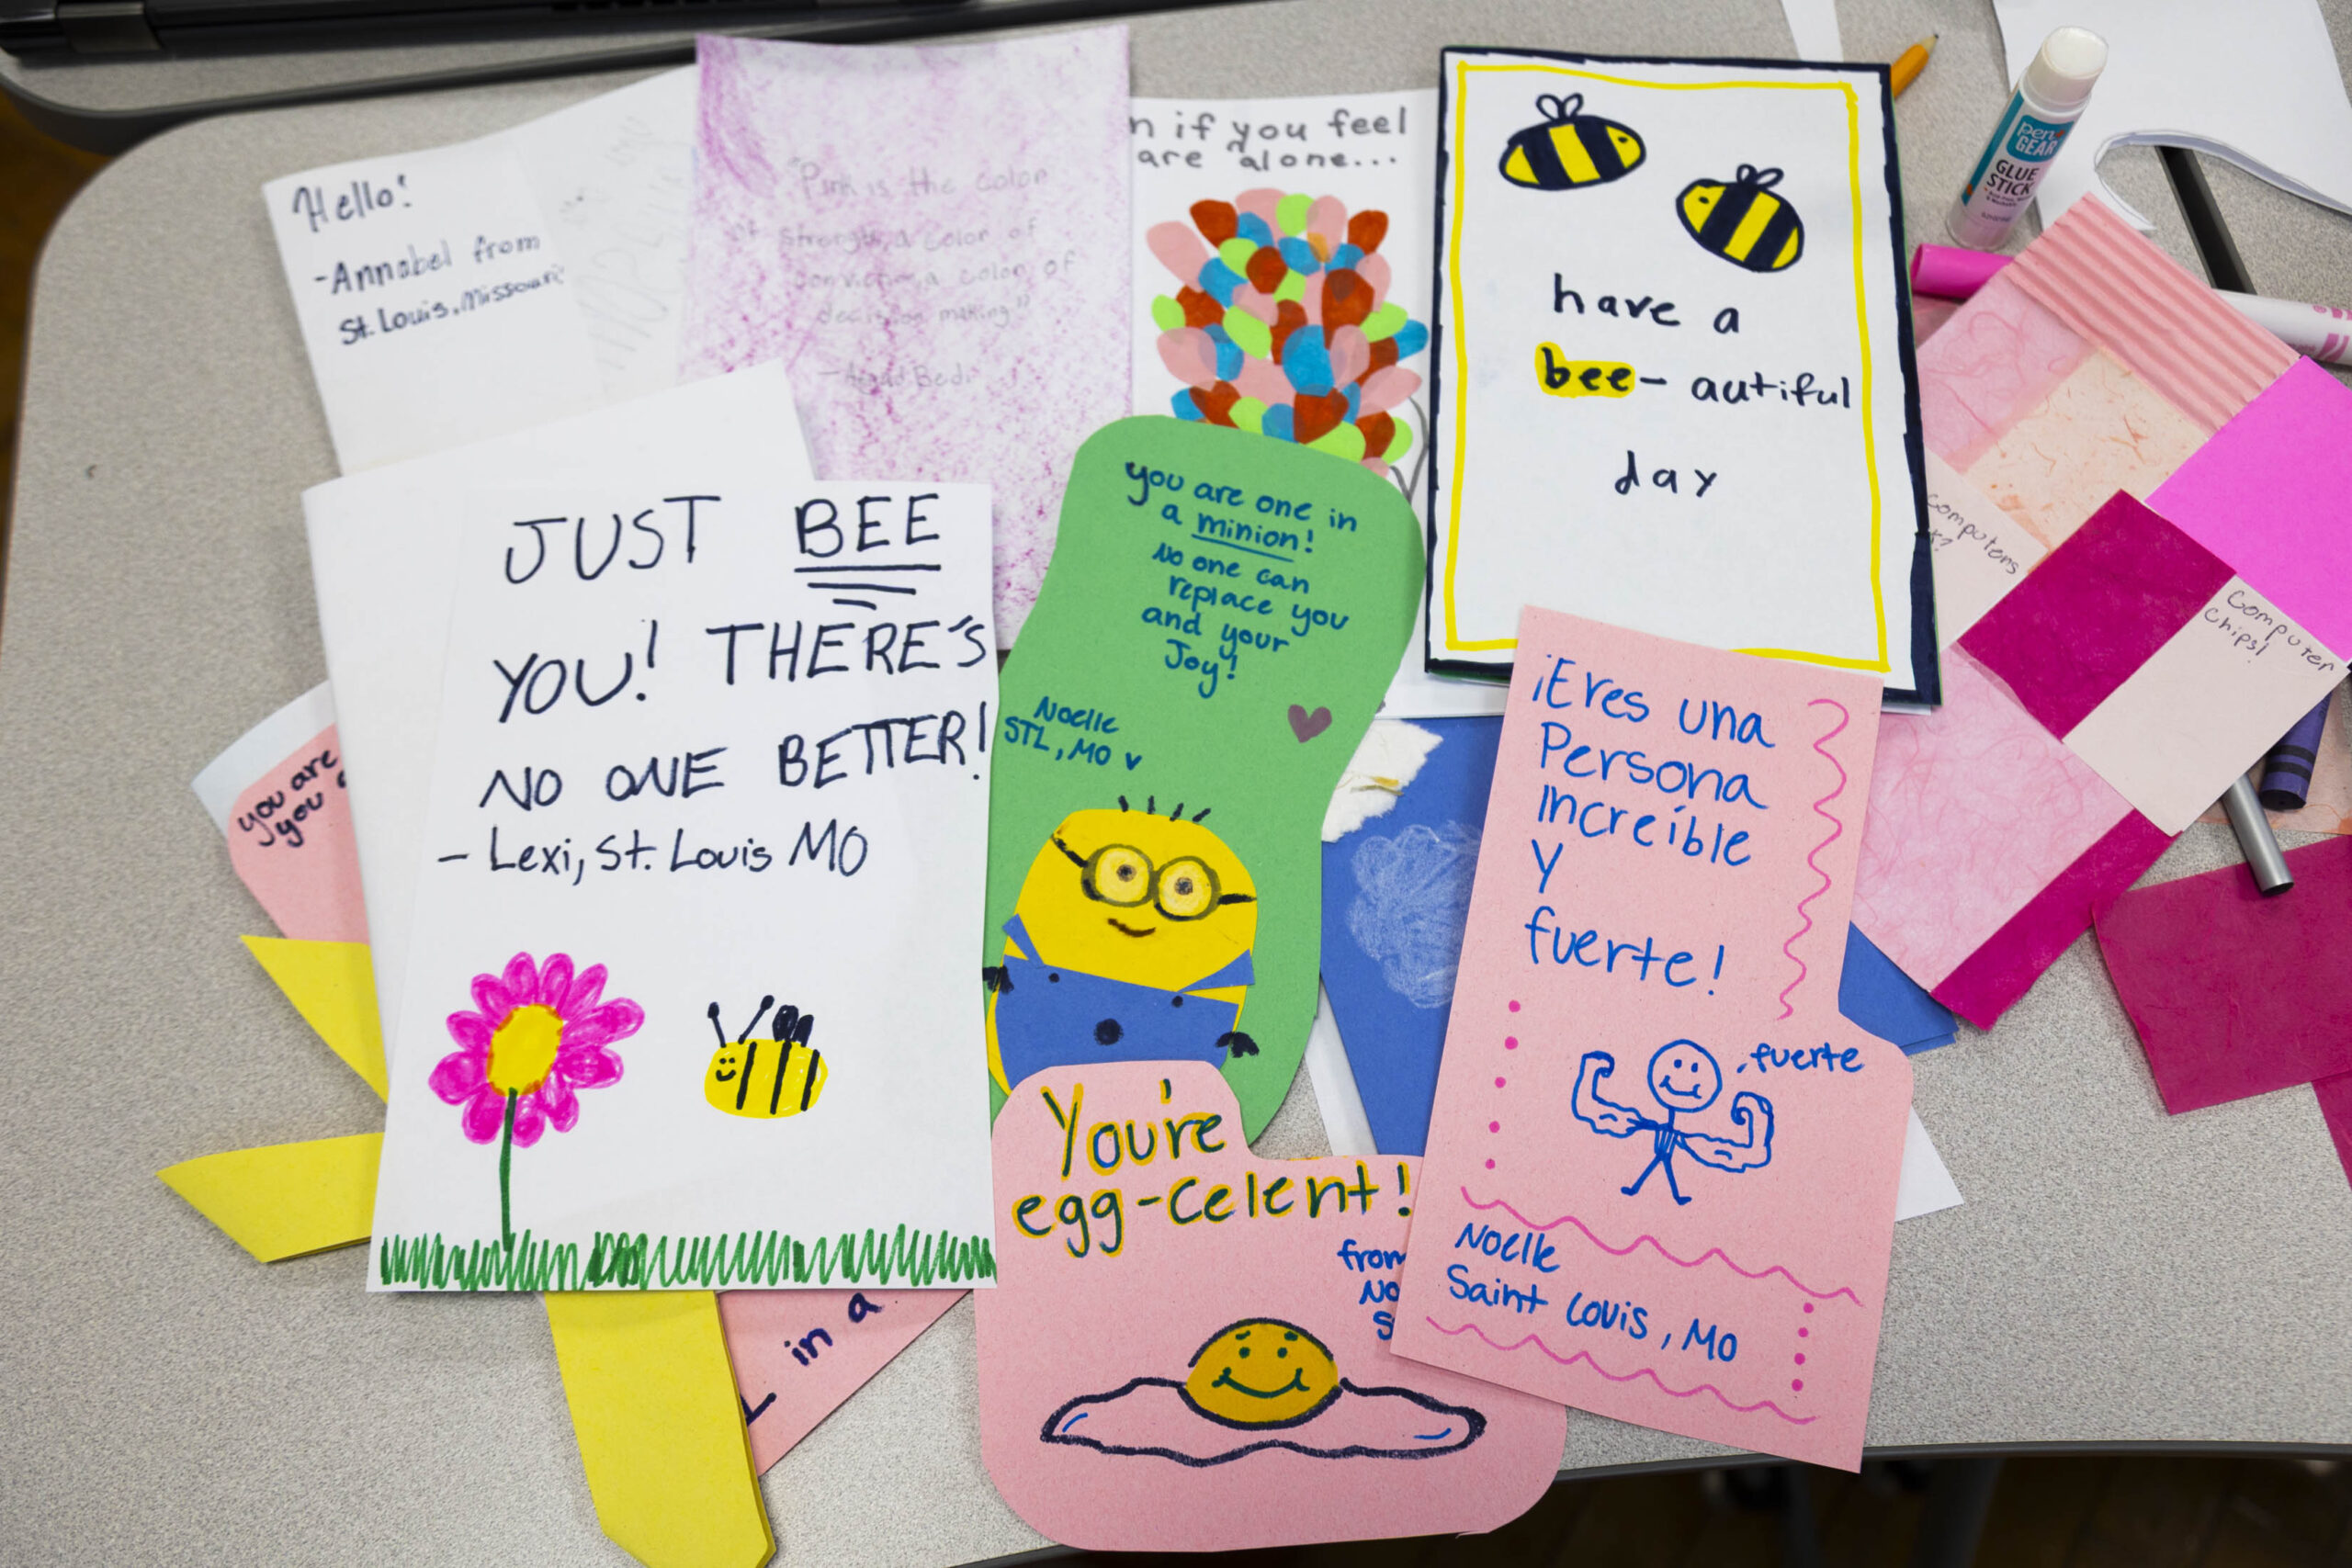 Hello!
-Annabel from
St. Louis, Missouri
"Pink is the color
of strength, a color of
conviction, a color of
decision making"
n if you feel
are alone...
have a
bee- autiful
day
pen+
GEAR
GLUE
STICK
JUST BEE
YOU! THERE'S
NO ONE BETTER!
- Lexi, St. Louis MO
you are one in
a minion!
No one can
replace you
and your
Joy!
Noelle
STL, MO
you are
you
in a
You're
egg-celent!
from
No
S
¡Eres una
Persona
increíble
Y
fuerte!
fuerte
Noelle
Saint Louis, MO
Computers
Computer
Chips!